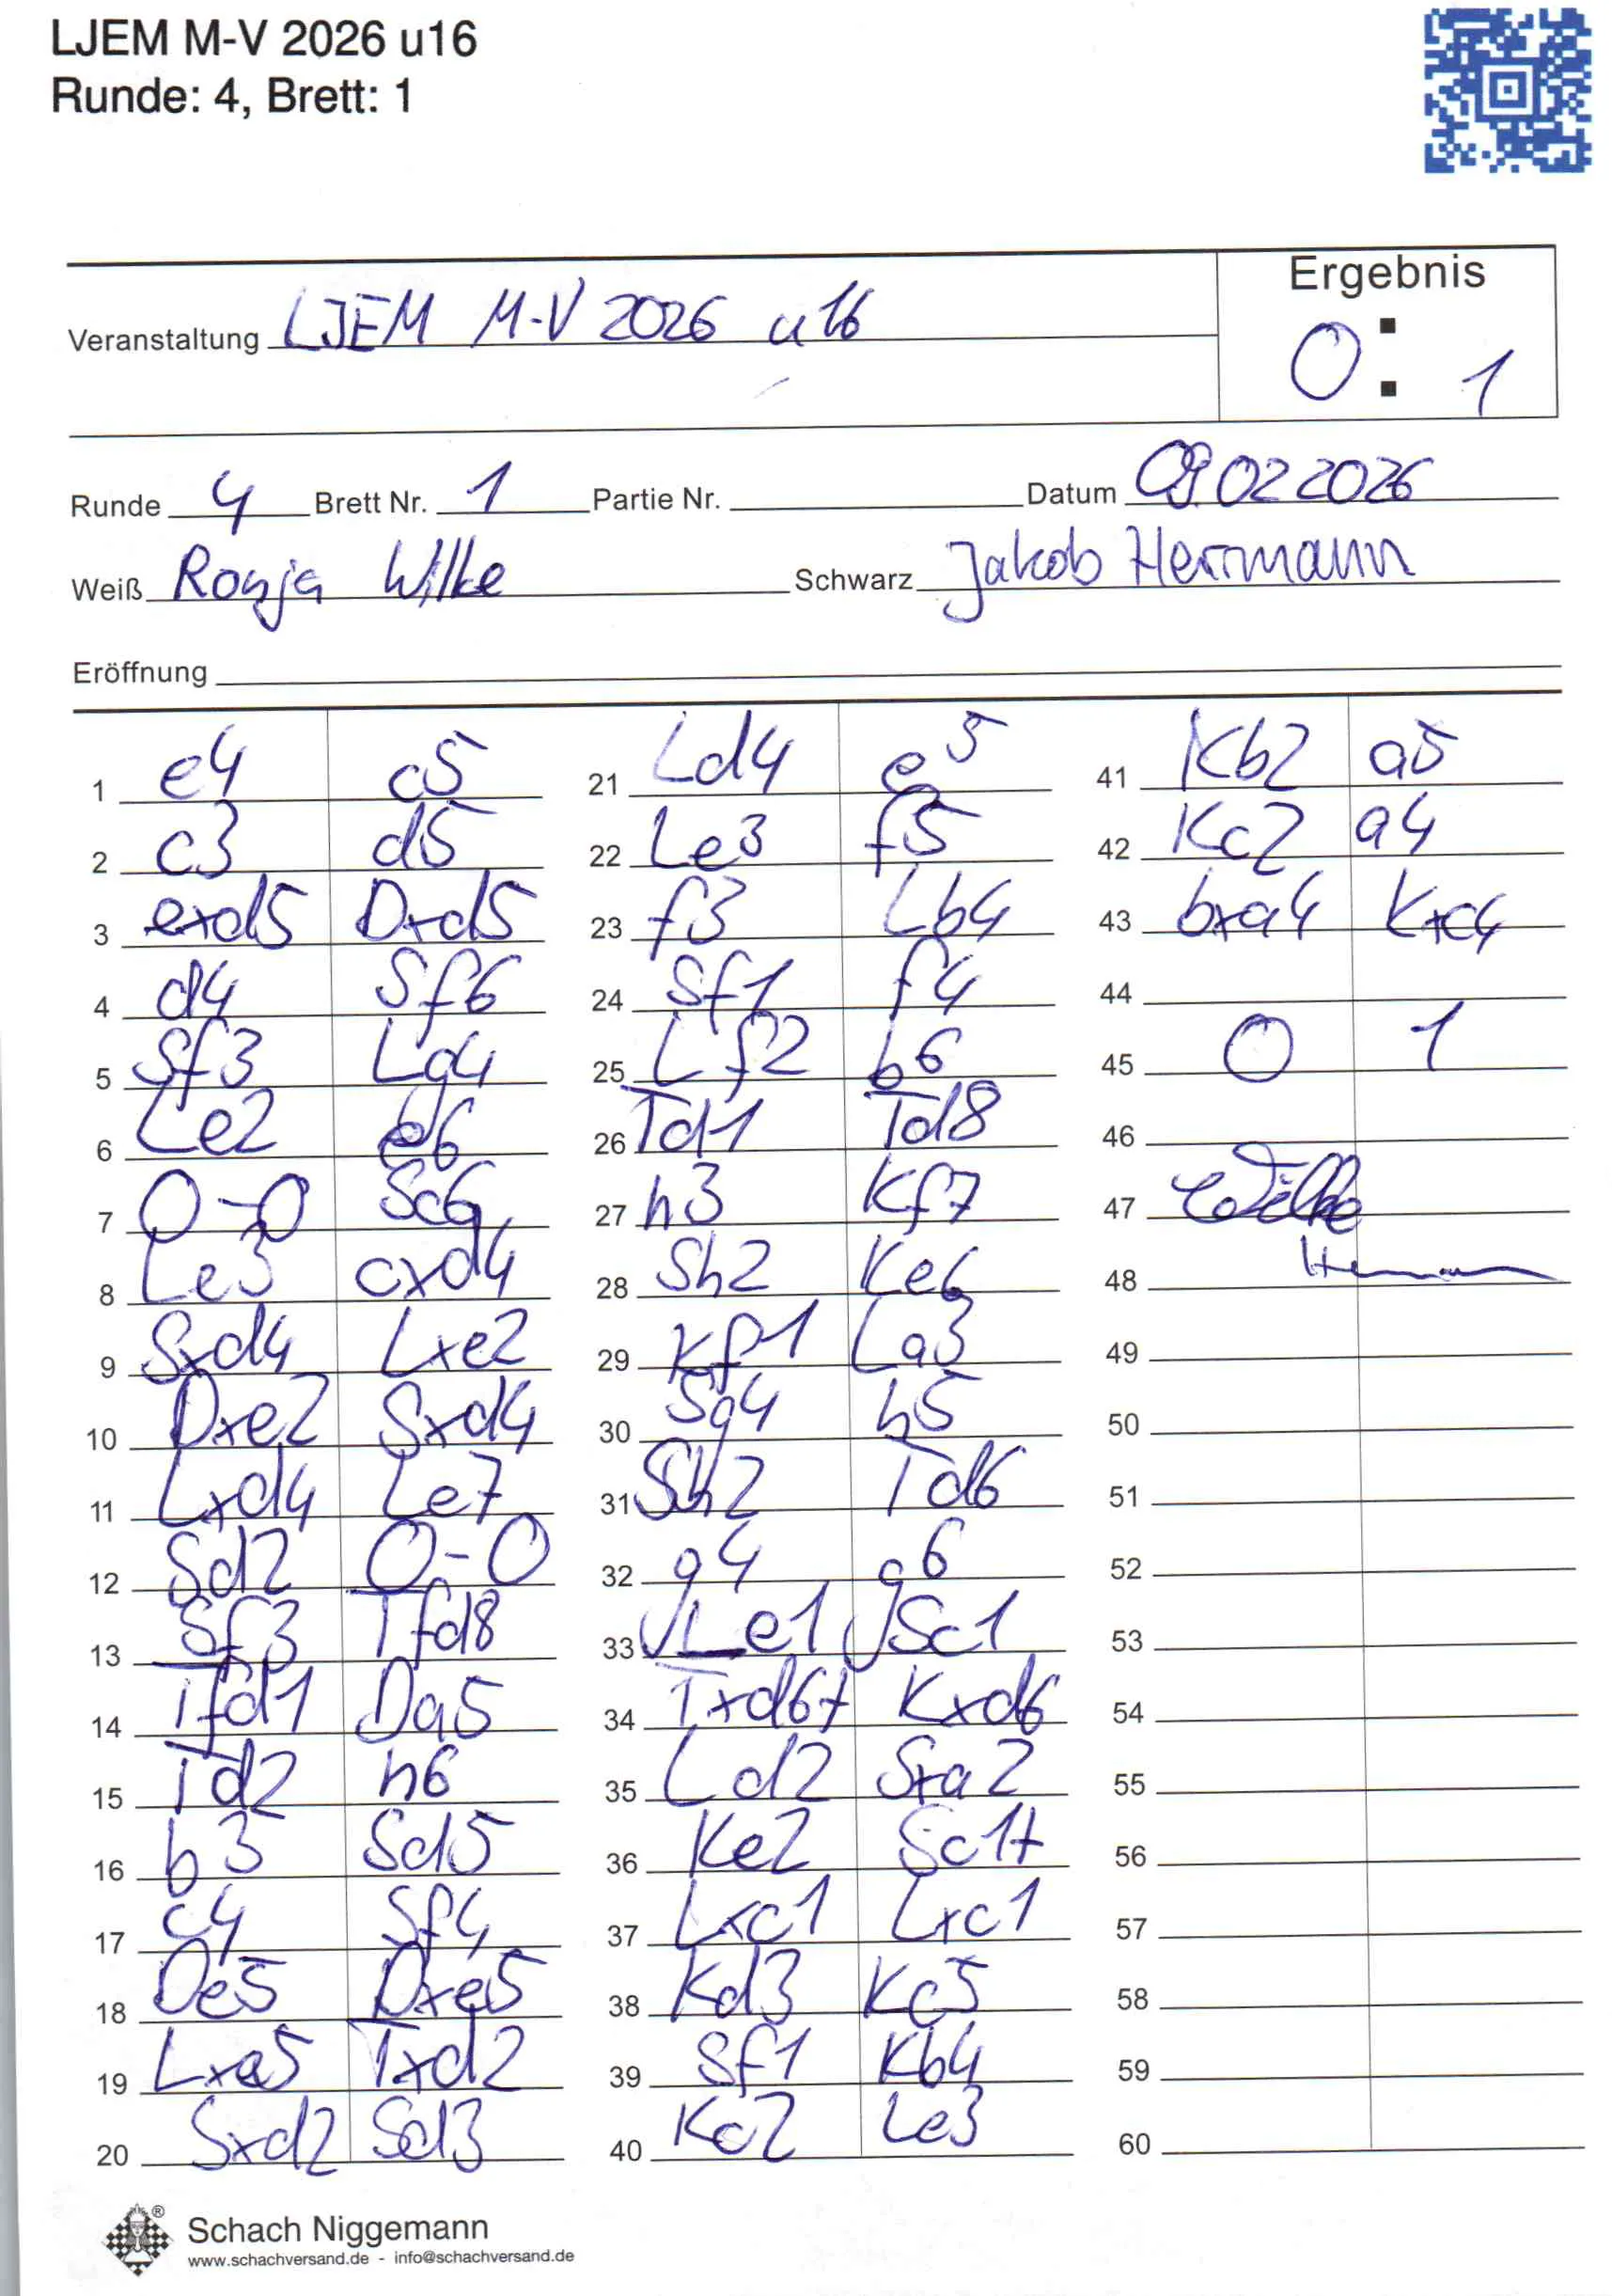 LJEM M-V 2026 u16
Runde: 4, Brett: 1
Ergebnis
Veranstaltung LJEM M-V 2026 u16
0 : 1
Runde 4 Brett Nr. 1 Partie Nr. Datum 09.02.2026
Weiß Ronja Wilke Schwarz Jakob Herrmann
Eröffnung
1 e4 c5
2 c3 d5
3 exd5 Dxd5
4 d4 Sf6
5 Sf3 Lg4
6 Le2 e6
7 0-0 Sc6
8 Le3 cxd4
9 Sxd4 Lxe2
10 Dxe2 Sxd4
11 Lxd4 Le7
12 Sd2 0-0
13 Sf3 Tfd8
14 Tfd1 Da5
15 Td2 h6
16 b3 Sd5
17 c4 Sf4
18 De5 Dxe5
19 Lxe5 Txd2
20 Sxd2 Sd3
21 Ld4 e5
22 Le3 f5
23 f3 Lb4
24 Sf1 f4
25 Lf2 b6
26 Td1 Td8
27 h3 Kf7
28 Sh2 Ke6
29 Kf1 La3
30 Sg4 h5
31 Sh2 Td6
32 g4 g6
33 Le1 Sc1
34 Txd6+ Kxd6
35 Ld2 Sxa2
36 Ke2 Sc1+
37 Lxc1 Lxc1
38 Kd3 Kc5
39 Sf1 Kb4
40 Kc2 Le3
41 Kb2 a5
42 Kc2 a4
43 bxa4 Kxc4
44
45 0 1
46
47 Wilke
48 Herrmann
49
50
51
52
53
54
55
56
57
58
59
60
Schach Niggemann
www.schachversand.de - info@schachversand.de